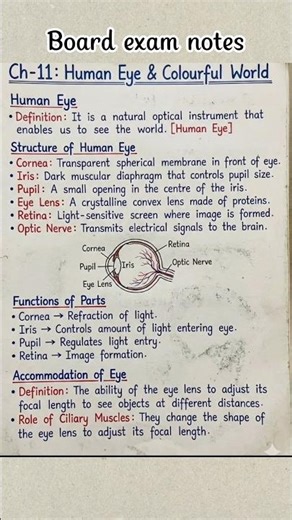 Board exam notes
Ch-11: Human Eye & Colourful World
Human Eye
• Definition: It is a natural optical instrument that
enables us to see the world. [Human Eye]
Structure of Human Eye
• Cornea: Transparent spherical membrane in front of eye.
• Iris: Dark muscular diaphragm that controls pupil size.
• Pupil: A small opening in the centre of the iris.
• Eye Lens: A crystalline convex lens made of proteins.
• Retina: Light-sensitive screen where image is formed.
• Optic Nerve: Transmits electrical signals to the brain.
Cornea
Retina
Pupil
Iris
Optic Nerve
Eye Lens
Functions of Parts
• Cornea → Refraction of light.
• Iris → Controls amount of light entering eye.
• Pupil → Regulates light entry.
• Retina → Image formation.
Accommodation of Eye
• Definition: The ability of the eye lens to adjust its
focal length to see objects at different distances.
• Role of Ciliary Muscles: They change the shape of
the eye lens to adjust its focal length.